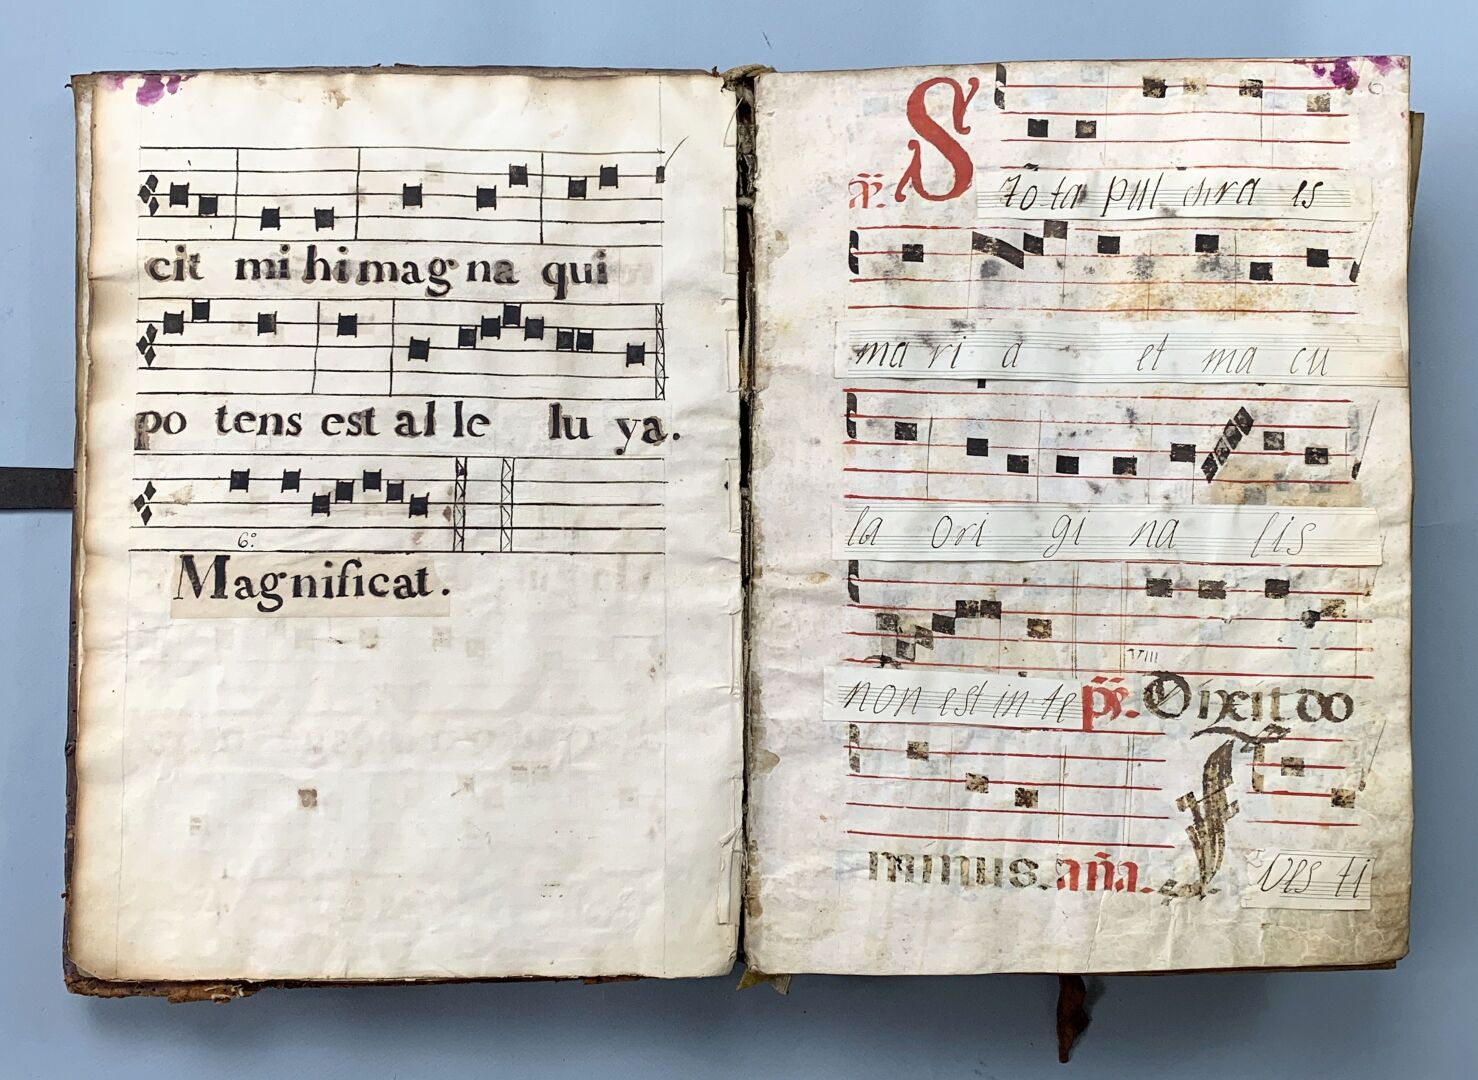 cit mi hi mag na qui
po tens est al le lu ya.
6º
Magnificat.
S
To ta pul chra es
ma ri a et ma cu
la ori gi na lis
VIII
non est in te ps. Dixit do
minus. aña. Ves ti